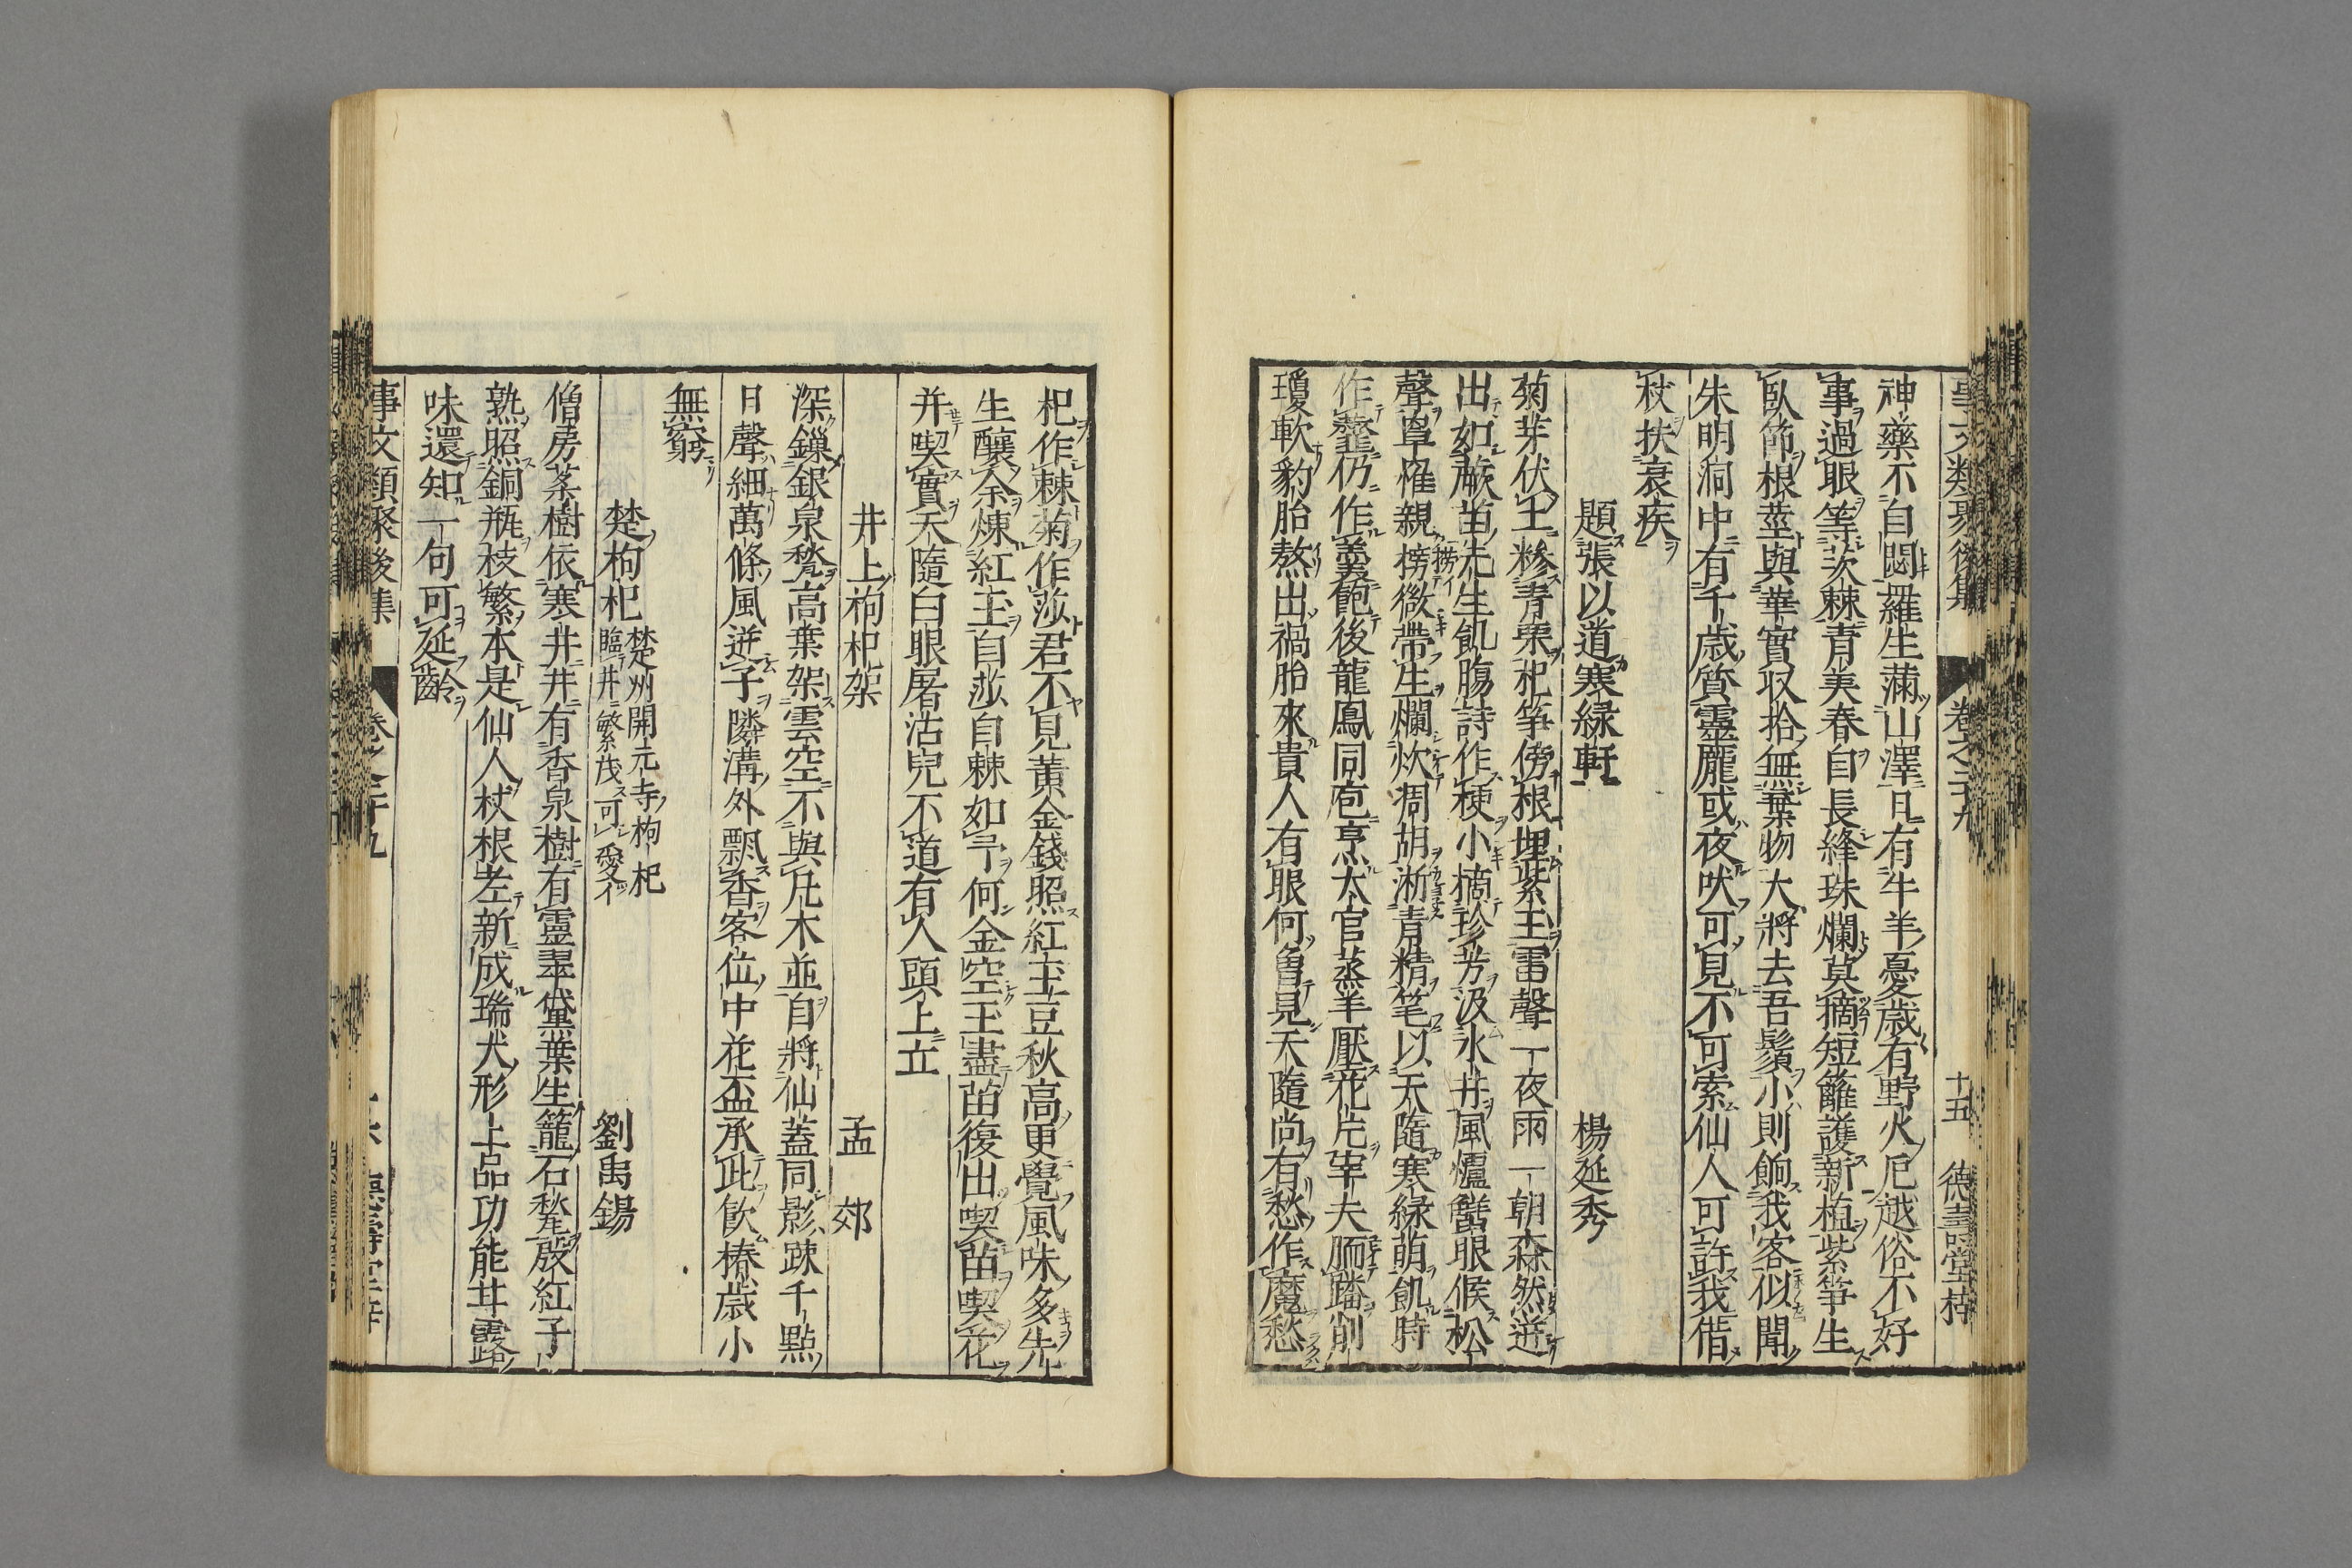 事文類聚後集 卷之二十九 十五 德壽堂梓
神藥不自閟羅生滿山澤日有牛羊憂歲有野火厄越俗不好
事過眼等茨棘青荑春自長絳珠爛莫摘短籬護新植紫笋生
臥節根莖與華實収拾無棄物大將去吾鬚小則餉我客似聞
朱明洞中有千歲質靈厖或夜吠可見不可索仙人可許我借
杖扶衰疾
題張以道寒緑軒 楊延秀
菊芽伏土糝青粟杞笋傍根埋紫玉雷聲一夜雨一朝森然迸
出如蕨苗先生飢膓詩作梗小摘珍芳汲水井風爐蟹眼候松
聲罩䍦親搒微帶生爛炊凋胡淅青精笔以天隨寒緑萌飢時
作虀仍作羮飽後龍鳳同庖烹太官蒸羊壓花片宰夫胹蹯削
瓊軟豹胎熬出禍胎來貴人有眼何曾見天隨尚有愁作魔愁
杞作棘菊作莎君不見黃金錢照紅玉豆秋高更覺風味多先
生釀金煉紅玉自莎自棘如予何金空玉盡苗復出喫苗喫花
并喫實天隨白眼屠沽兒不道有人頭上立
井上枸杞架 孟郊
深鏁銀泉甃高葉架雲空不與凡木並自將仙蓋同影踈千點
日聲細萬條風迸子隣溝外飄香客位中花盃承此飲椿歲小
無窮
楚枸杞 楚州開元寺枸杞臨井繁茂可愛 劉禹錫
僧房藥樹依寒井井有香泉樹有靈翠黛葉生籠石甃殷紅子
熟照銅瓶枝繁本是仙人杖根老新成瑞犬形上品功能甘露
味還知一句可延齡
事文類聚後集 卷之二十九